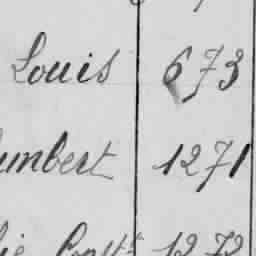 Louis 673
umbert 1271
1272